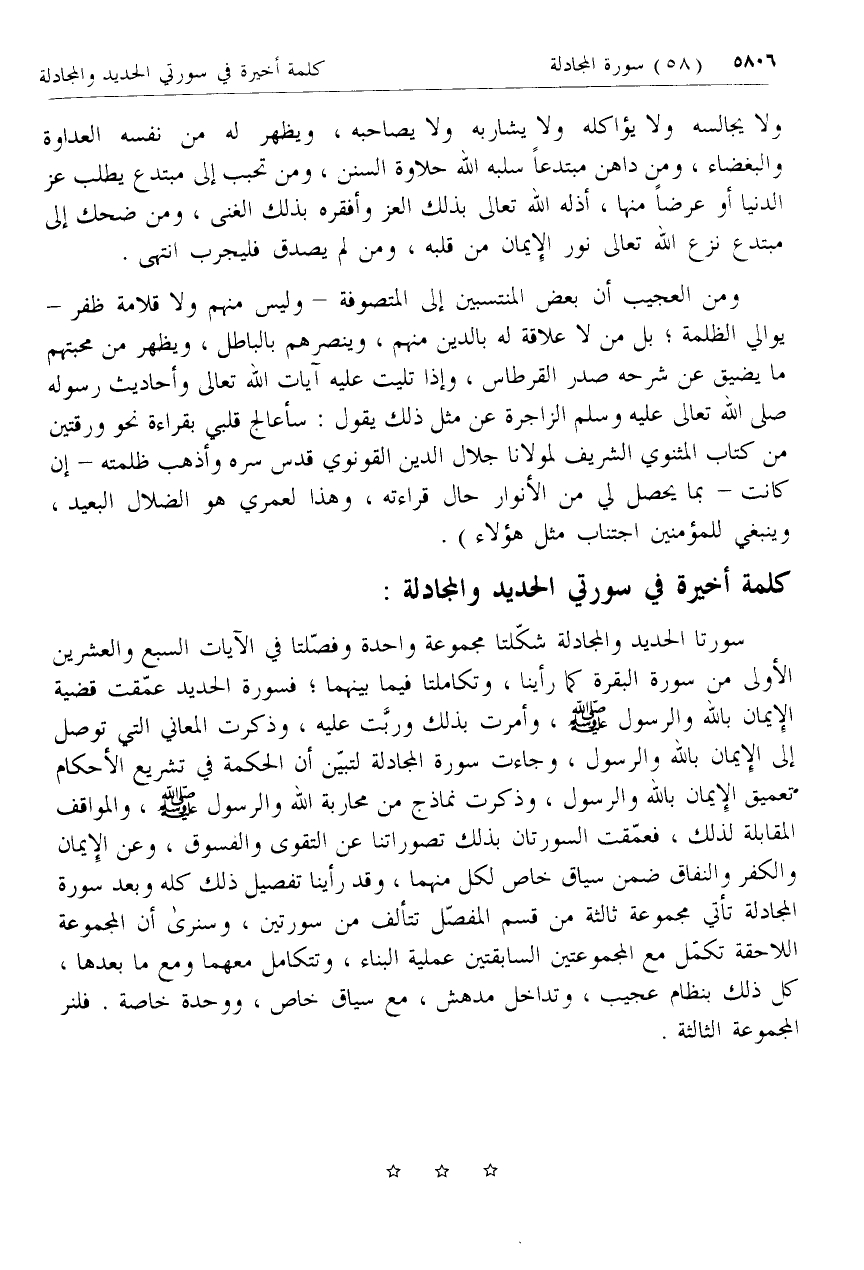 ٥٨٠٦ (٥٨) سورة المجادلة كلمة أخيرة في سورتي الحديد والمجادلة
ولا يجالسه ولا يؤاكله ولا يشاربه ولا يصاحبه ، ويظهر له من نفسه العداوة
والبغضاء ، ومن داهن مبتدعاً سلبه الله حلاوة السنن ، ومن تحبب إلى مبتدع يطلب عز
الدنيا أو عرضاً منها ، أذله الله تعالى بذلك العز وأفقره بذلك الغنى ، ومن ضحك إلى
مبتدع نزع الله تعالى نور الإيمان من قلبه ، ومن لم يصدق فليجرب انتهى .
ومن العجيب أن بعض المنتسبين إلى المتصوفة – وليس منهم ولا قلامة ظفر –
يوالي الظلمة ؛ بل من لا علاقة له بالدين منهم ، وينصرهم بالباطل ، ويظهر من محبتهم
ما يضيق عن شرحه صدر القرطاس ، وإذا تليت عليه آيات الله تعالى وأحاديث رسوله
صلى الله تعالى عليه وسلم الزاجرة عن مثل ذلك يقول : سأعالج قلبي بقراءة نحو ورقتين
من كتاب المثنوي الشريف لمولانا جلال الدين القونوي قدس سره وأذهب ظلمته – إن
كانت – بما يحصل لي من الأنوار حال قراءته ، وهذا لعمري هو الضلال البعيد ،
وينبغي للمؤمنين اجتناب مثل هؤلاء ) .
كلمة أخيرة في سورتي الحديد والمجادلة :
سورتا الحديد والمجادلة شكّلتا مجموعة واحدة وفصّلتا في الآيات السبع والعشرين
الأولى من سورة البقرة كما رأينا ، وتكاملتا فيما بينهما ؛ فسورة الحديد عمّقت قضية
الإيمان بالله والرسول ﷺ ، وأمرت بذلك وربَّت عليه ، وذكرت المعاني التي توصل
إلى الإيمان بالله والرسول ، وجاءت سورة المجادلة لتبيّن أن الحكمة في تشريع الأحكام
تعميق الإيمان بالله والرسول ، وذكرت نماذج من محاربة الله والرسول ﷺ ، والمواقف
المقابلة لذلك ، فعمّقت السورتان بذلك تصوراتنا عن التقوى والفسوق ، وعن الإيمان
والكفر والنفاق ضمن سياق خاص لكل منهما ، وقد رأينا تفصيل ذلك كله وبعد سورة
المجادلة تأتي مجموعة ثالثة من قسم المفصّل تتألف من سورتين ، وسنرىٰ أن المجموعة
اللاحقة تكمّل مع المجموعتين السابقتين عملية البناء ، وتتكامل معهما ومع ما بعدها ،
كل ذلك بنظام عجيب ، وتداخل مدهش ، مع سياق خاص ، ووحدة خاصة . فلنر
المجموعة الثالثة .
☆ ☆ ☆